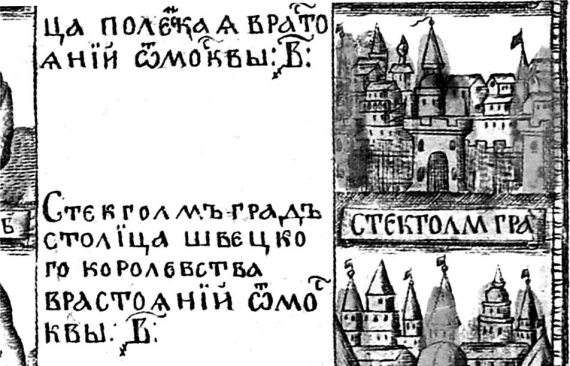 ца полскаѧ в расто
ѧнїй ѿ москвы: ҂в҃:
Стекголмъ градъ
столїца швецко
го королевства
врастоѧнїй ѿ мо
квы: ҂в҃:
СТЕКГОЛМ ГРА
Б